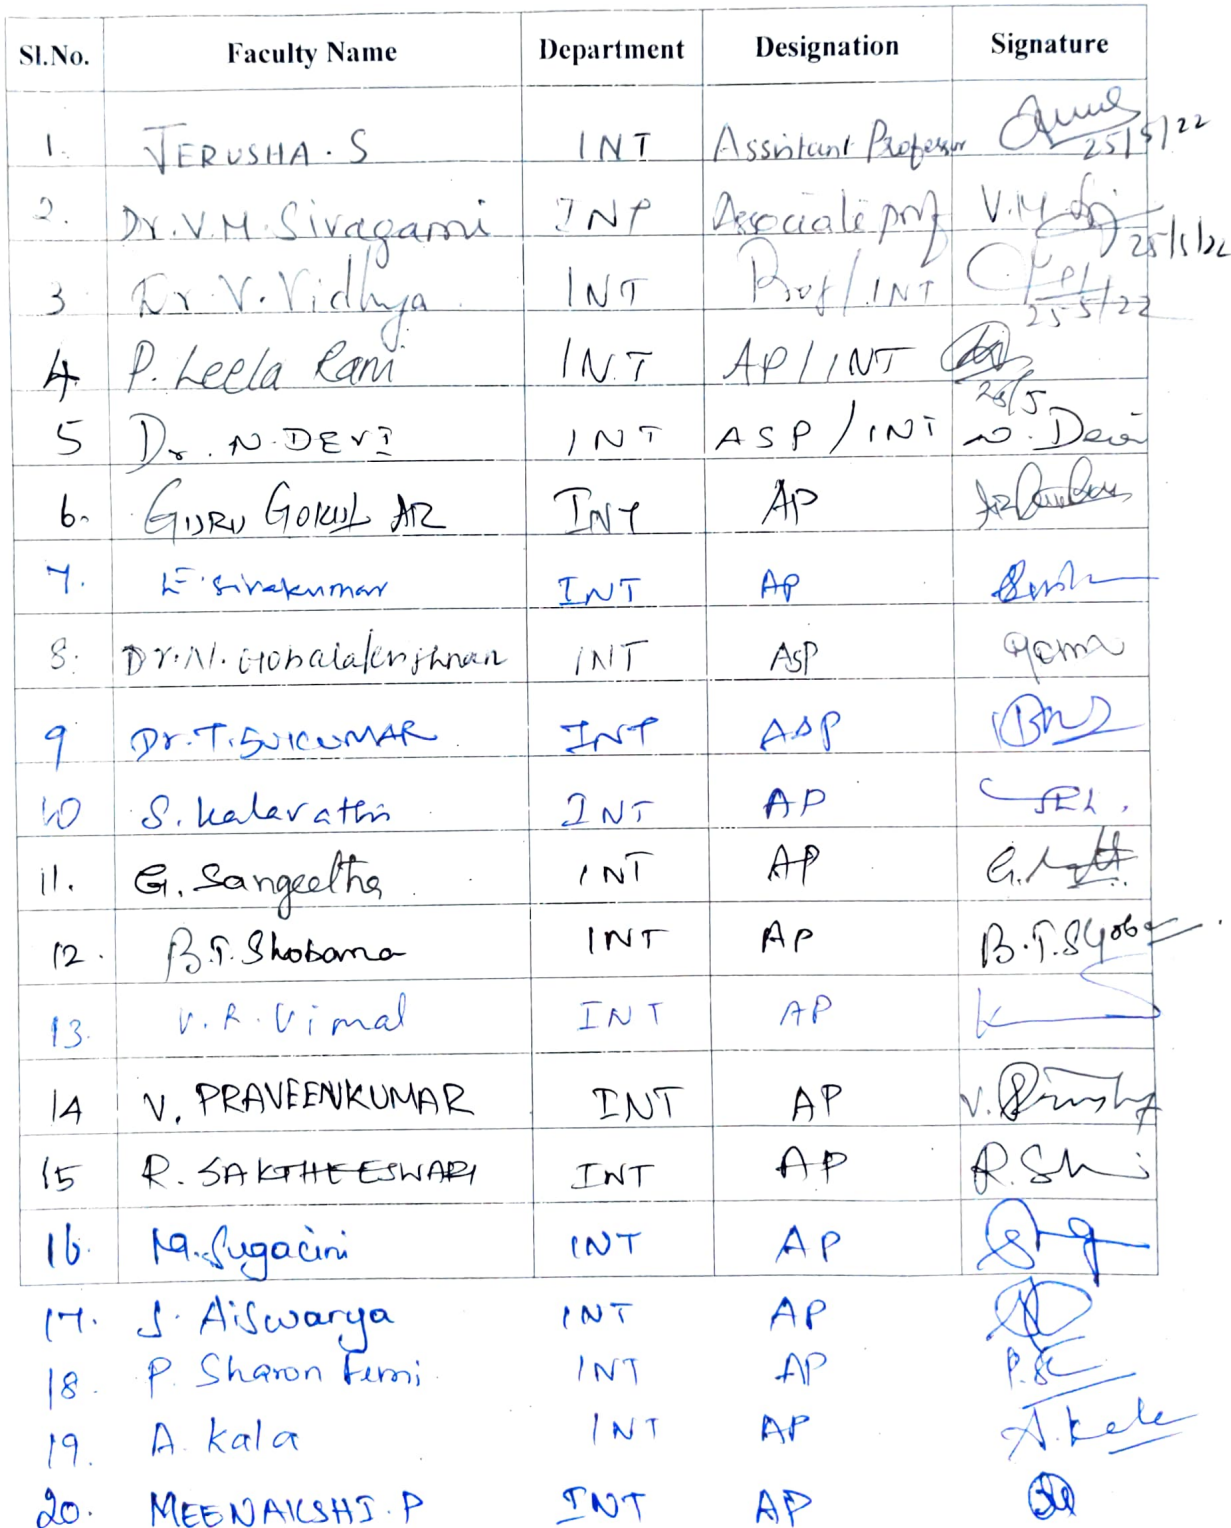 Sl.No. Faculty Name Department Designation Signature
1. JERUSHA. S INT Assistant Professor 25/5/22
2. Dr. V.M. Sivagami INT Associate prof V.M. 25/5/22
3 Dr. V. Vidhya INT Prof/INT 25/5/22
4. P. Leela Rani INT AP/INT 25/5
5 Dr. N. DEVI INT ASP/INT N. Devi
6. GURU GOKUL AR INT AP
7. E. Sivakumar INT AP
8. Dr. N. Gobalakrishnan INT ASP
9 Dr. T. SUKUMAR INT ASP
10 S. Kalavathi INT AP
11. G. Sangeetha INT AP G.
12. B.T. Shobana INT AP B.T.
13. V. R. Vimal INT AP
14 V. PRAVEENKUMAR INT AP V.
15 R. SAKTHEESWARI INT AP R.
16. M. Sugacini INT AP
17. S. Aiswarya INT AP
18. P. Sharon Femi INT AP
19. A. Kala INT AP A. Kala
20. MEENAKSHI. P INT AP